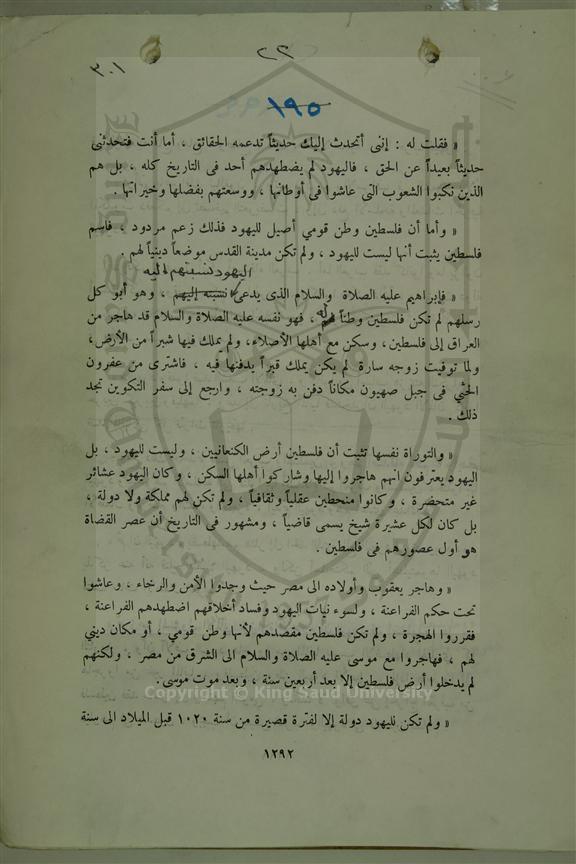 ٢٢
٣٠١
١٩٥
« فقلت له : إنني أتحدث إليك حديثاً تدعمه الحقائق ، أما أنت فتحدثني
حديثاً بعيداً عن الحق ، فاليهود لم يضطهدهم أحد في التاريخ كله ، بل هم
الذين نكبوا الشعوب التي عاشوا في أوطانها ، ووسعتهم بفضلها وخيراتها .
« وأما أن فلسطين وطن قومي أصيل لليهود فذلك زعم مردود ، فاسم
فلسطين يثبت أنها ليست لليهود ، ولم تكن مدينة القدس موضعاً دينياً لهم .
اليهود نسبتهم اليه
« فإبراهيم عليه الصلاة والسلام الذي يدعى نسبته إليهم ، وهو أبو كل
رسلهم لم تكن فلسطين وطناً له ، فهو نفسه عليه الصلاة والسلام قد هاجر من
العراق إلى فلسطين ، وسكن مع أهلها الأصلاء، ولم يملك فيها شبراً من الأرض،
ولما توفيت زوجه سارة لم يكن يملك قبراً يدفنها فيه ، فاشترى من عفرون
الحثي في جبل صهيون مكاناً دفن به زوجته ، وارجع إلى سفر التكوين تجد
ذلك .
« والتوراة نفسها تثبت أن فلسطين أرض الكنعانيين ، وليست لليهود ، بل
اليهود يعترفون انهم هاجروا إليها وشاركوا أهلها السكن ، وكان اليهود عشائر
غير متحضرة ، وكانوا منحطين عقلياً وثقافياً ، ولم تكن لهم مملكة ولا دولة ،
بل كان لكل عشيرة شيخ يسمى قاضياً ، ومشهور في التاريخ أن عصر القضاة
هو أول عصورهم في فلسطين .
« وهاجر يعقوب وأولاده الى مصر حيث وجدوا الأمن والرخاء ، وعاشوا
تحت حكم الفراعنة ، ولسوء نيات اليهود وفساد أخلاقهم اضطهدهم الفراعنة ،
فقرروا الهجرة ، ولم تكن فلسطين مقصدهم لأنها وطن قومي ، أو مكان ديني
لهم ، فهاجروا مع موسى عليه الصلاة والسلام الى الشرق من مصر ، ولكنهم
لم يدخلوا أرض فلسطين إلا بعد أربعين سنة ، وبعد موت موسى .
Copyright © King Saud University
« ولم تكن لليهود دولة إلا لفترة قصيرة من سنة ١٠٢٠ قبل الميلاد الى سنة
١٢٩٢